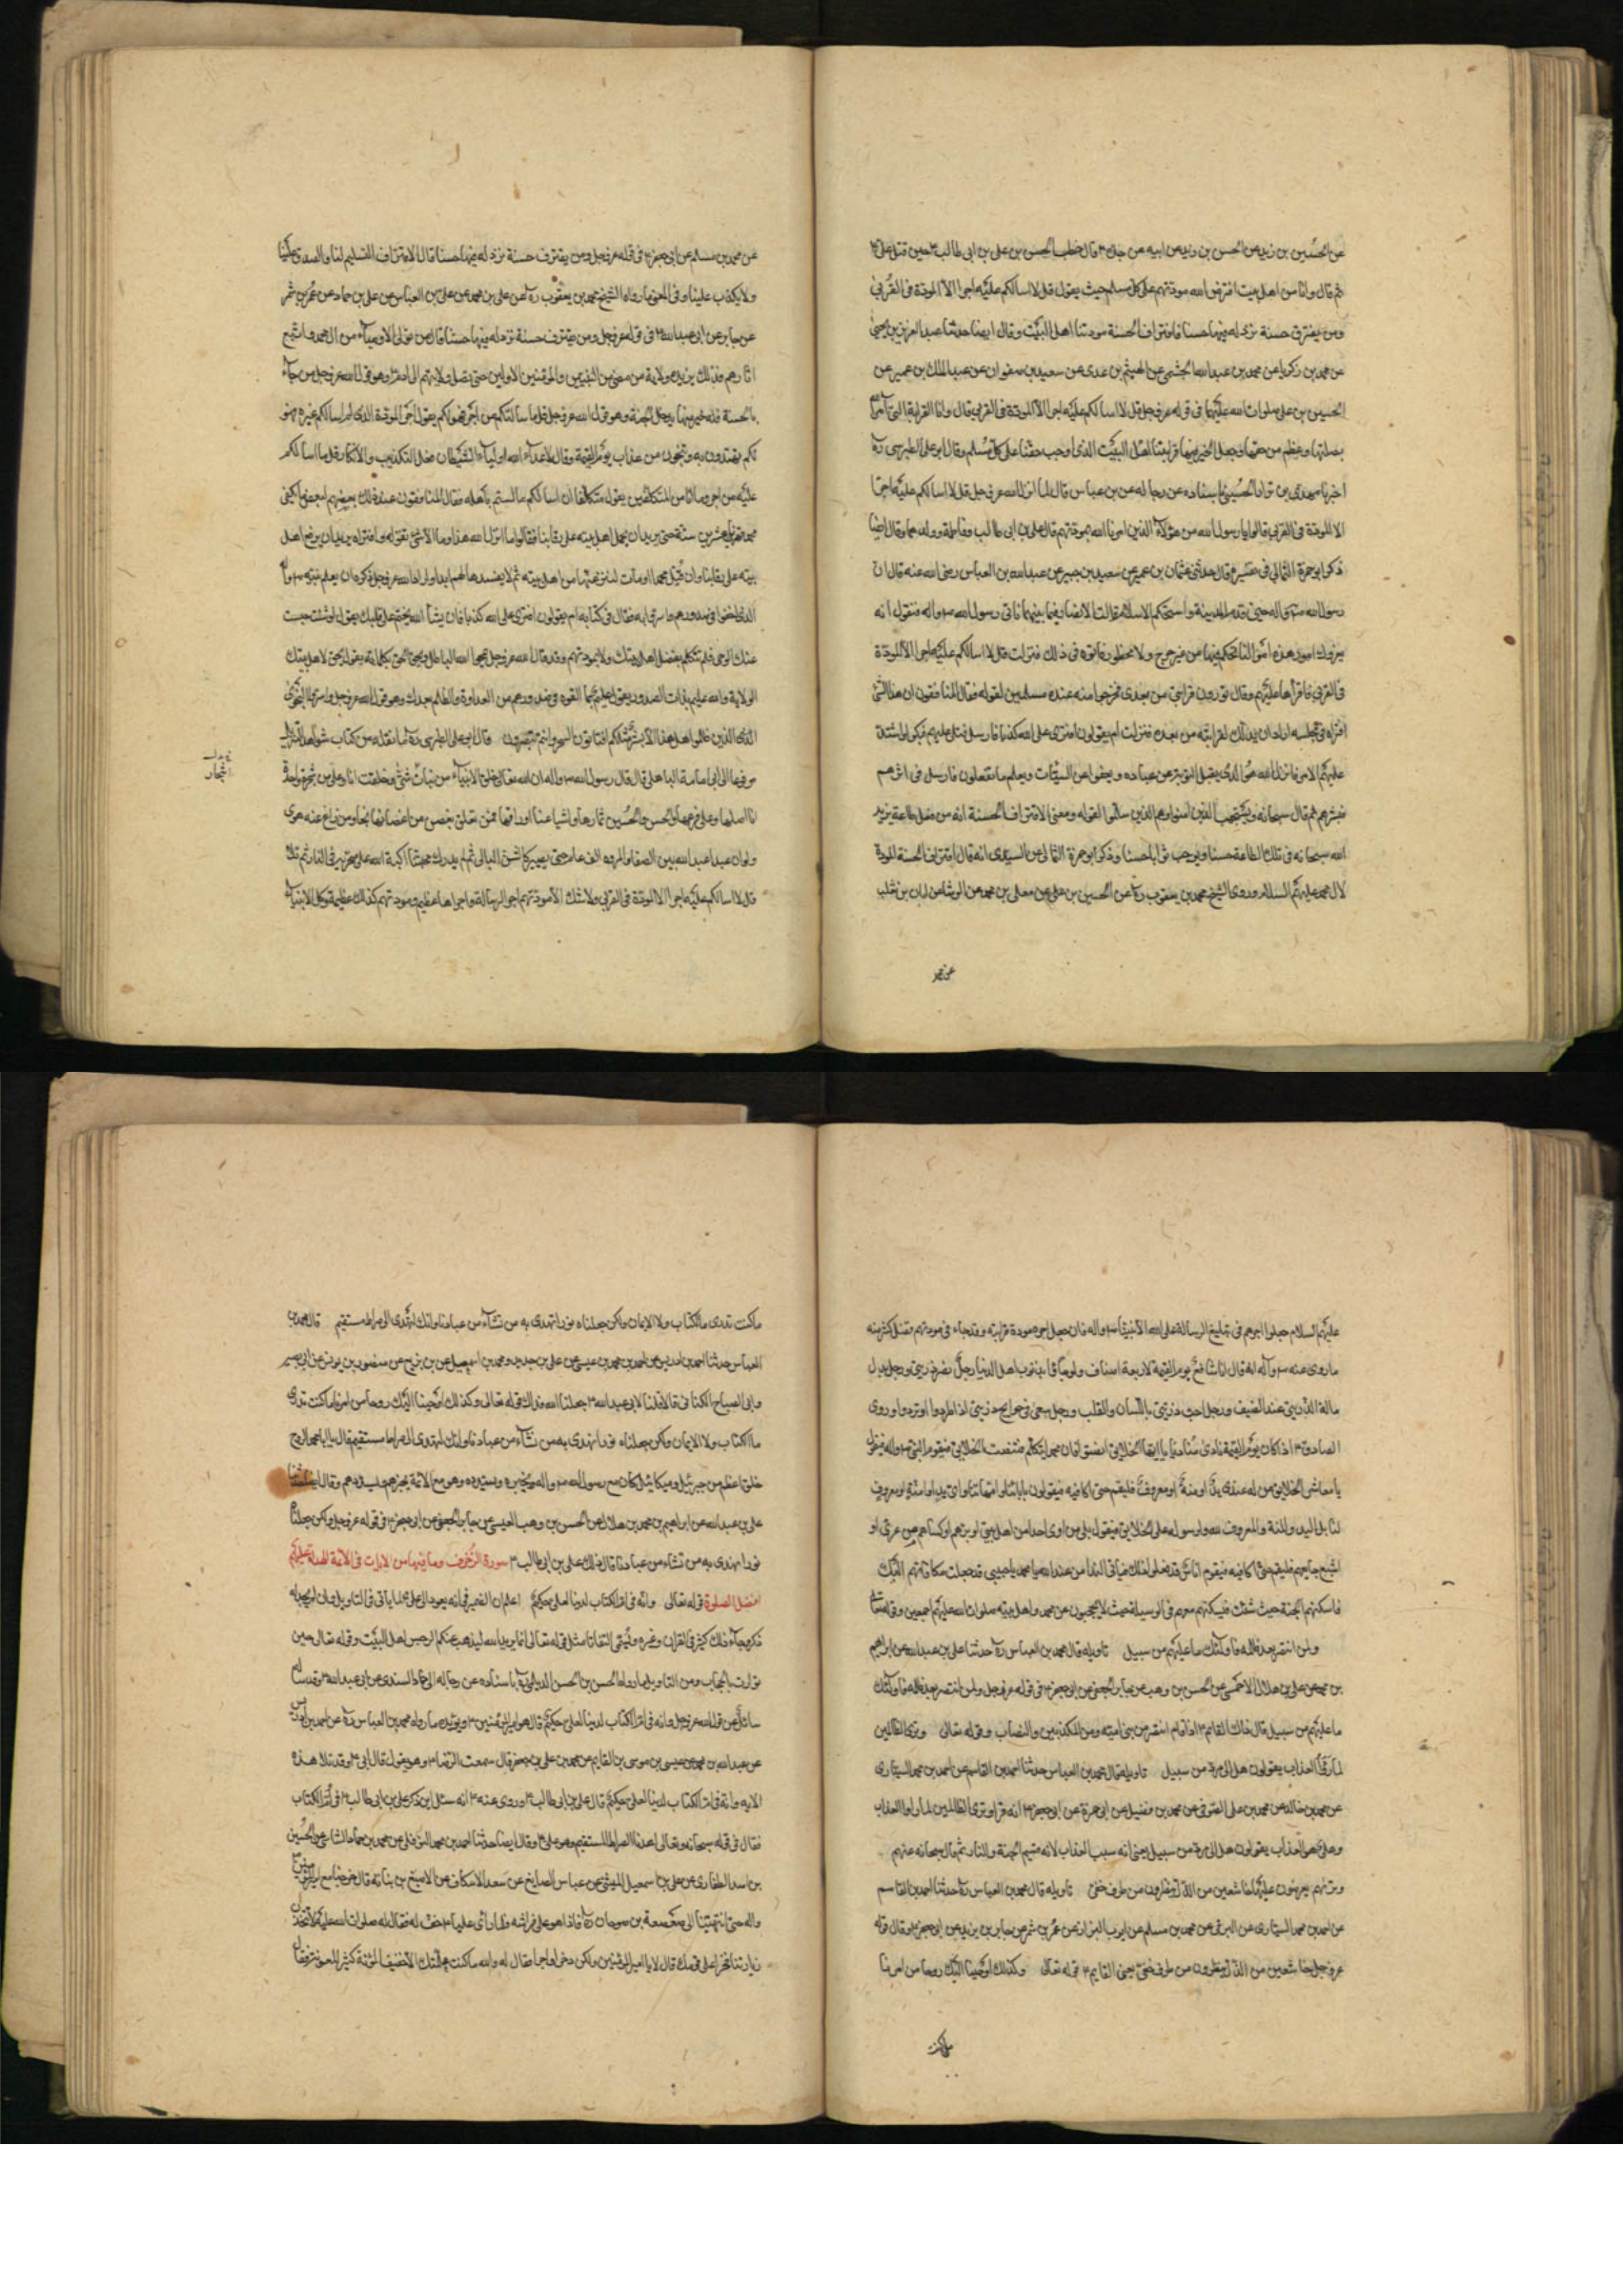 عن الحسين بن زيد عن الحسن بن زيد عن ابيه عن جده ع قال خطب الحسن بن علي بن ابي طالب ع حين قتل علي ع
ثم قال وانا من اهل بيت افترض الله مودتهم على كل مسلم حيث يقول قل لا اسالكم عليه اجرا الا المودة في القربى
ومن يقترف حسنة نزد له فيها حسنا فاقتراف الحسنة مودتنا اهل البيت وقال ايضا حدثنا عبد العزيز بن يحيى
عن محمد بن زكريا عن محمد بن عبد الله الجشمي عن الهيثم بن عدى عن سعيد بن صفوان عن عبد الملك بن عمير عن
الحسين بن علي صلوات الله عليهما في قوله عز وجل قل لا اسالكم عليه اجرا الا المودة في القربى قال وان القرابة التي امر الله
بصلتها وعظم من حقها وجعل الخير فيها قرابتنا اهل البيت الذي اوجب حقنا على كل مسلم وقال ابو علي الطبرسي ره
اخبرنا مهدى بن نزار الحسيني باسناده عن رجاله عن بن عباس قال لما انزل الله عز وجل قل لا اسالكم عليه اجرا
الا المودة في القربى قالوا يا رسول الله من هؤلاء الذين امرنا الله بمودتهم قال علي بن ابي طالب وفاطمة وولدهما وقال ايضا
ذكر ابو حمزة الثمالي في تفسيره قال حدثني عثمان بن عمير عن سعيد بن جبير عن عبد الله بن العباس رضي الله عنه قال ان
رسول الله ص واله حين قدم المدينة واستحكم الاسلام قالت الانصار فيما بينها ناتي رسول الله ص واله فنقول انه
يعروك امور هذه اموالنا تحكم فيها من غير حرج ولا محظور فاتوه في ذلك فنزلت قل لا اسالكم عليه اجرا الا المودة
في القربى فاقراها عليهم وقال تودون قرابتي من بعدى فخرجوا من عنده مسلمين لقوله فقال المنافقون ان هذا لشئ
افتراه في مجلسه اراد ان يذللنا لقرابته من بعده فنزلت ام يقولون افترى على الله كذبا فارسل فتلى عليهم فبكوا واشتد
عليهم الامر فانزل الله هو الذي يقبل التوبة عن عباده ويعفوا عن السيئات ويعلم ما تفعلون فارسل في اثرهم
فبشرهم ثم قال سبحانه ويستجيب الذين امنوا وهم الذين سلموا لقوله ومعنى الاقتراف الحسنة انه من فعل طاعة يزيد
الله سبحانه في تلك الطاعة حسنا ويوجب ثوابا حسنا وذكر ابو حمزة الثمالي عن السدى انه قال اقتراف الحسنة المودة
لال محمد عليهم السلام وروى الشيخ محمد بن يعقوب ره عن الحسين بن علي عن معلى بن محمد عن الوشا عن ابان بن تغلب
عن محمد
عن محمد بن مسلم عن ابي جعفر ع في قوله عز وجل ومن يقترف حسنة نزد له فيها حسنا قال الاقتراف التسليم لنا والصدق علينا
ولا يكذب علينا وفي المعنى ما رواه الشيخ محمد بن يعقوب ره عن علي بن محمد عن علي بن العباس عن علي بن حماد عن عمرو بن شمر
عن جابر عن ابي عبد الله ع في قوله عز وجل ومن يقترف حسنة نزد له فيها حسنا قال من تولى الاوصياء من ال محمد واتبع
اثارهم فذلك نزيده ولاية من مضى من النبيين والمؤمنين الاولين حتى تصل ولايتهم الى ادم ع وهو قول الله عز وجل من جاء
بالحسنة فله خير منها يدخل الجنة وهو قول الله عز وجل قل ما سالتكم من اجر فهو لكم يقول اجر المودة الذي لم اسالكم غيره فهو
لكم تهتدون به وتنجون من عذاب يوم القيمة وقال لاعداء الله اولياء الشيطان اهل التكذيب والانكار قل ما اسالكم
عليه من اجر وما انا من المتكلفين يقول متكلفا ان اسالكم ما لستم باهله فقال المنافقون عند ذلك بعضهم لبعض اما يكفي
محمد قهرنا عشرين سنة حتى يريد ان يحمل اهل بيته على رقابنا فقالوا ما انزل الله هذا وما الا شئ تقوله وافتراه يريد ان يرفع اهل
بيته على رقابنا ولئن قتل محمد او مات لننزعنها من اهل بيته ثم لا نعيدها لهم ابدا واراد الله عز وجل ذكره ان يعلم نبيه ص واله
الذي اخفوا في صدورهم واسروا به فقال في كتابه ام يقولون افترى على الله كذبا فان يشا الله يختم على قلبك يقول لو شئت حبست
عنك الوحي فلم تتكلم بفضل اهل بيتك ولا بمودتهم وقد قال الله عز وجل يمحوا الله الباطل ويحق الحق بكلماته يقول الحق لاهل بيتك
الولاية والله عليم بذات الصدور يقول عليم بما القوه في صدورهم من العداوة والظلم بعدك وهو قول الله عز وجل واسروا النجوى
الذين ظلموا هل هذا الا بشر مثلكم افتاتون السحر وانتم تبصرون قال ابو علي الطبرسي ره ما نقله من كتاب شواهد التنزيل
مرفوعا الى ابي امامة الباهلي قال قال رسول الله ص واله ان الله تعالى خلق الانبياء من نبات شتى وخلقت انا وعلي من شجرة واحدة
انا اصلها وعلي فرعها والحسن والحسين ثمارها واشياعنا اوراقها فمن تعلق بغصن من اغصانها نجا ومن زاغ عنه هوى
ولو ان عبدا عبد الله بين الصفا والمروه الف عام حتى يصير كالشن البالي ثم لم يدرك محبتنا اكبه الله على منخريه في النار ثم تلا
قل لا اسالكم عليه اجرا الا المودة في القربى ولا شك الا مودتهم اجر الرسالة واجرها عظيم ومودتهم كذلك عظيمة وكل الانبياء
اشجار
عليهم السلام جعلوا اجرهم في تبليغ الرسالة على الله الا نبينا ص واله فان جعل اجره مودة قرابته وقد جاء في مودتهم وفضل كثر منه
ما روى عنه ص واله انه قال انا شافع يوم القيمة لاربعة اصناف ولو جاؤا بذنوب اهل الدنيا رجل نصر ذريتي ورجل بذل
ماله لذريتي عند الضيق ورجل احب ذريتي باللسان والقلب ورجل سعى في حوايج ذريتي اذا طردوا او تردوا وروى
الصادق ع اذا كان يوم القيمة نادى مناد يا ايها الخلايق انصتوا فان محمدا يكلمكم فتنصت الخلايق فيقوم النبي ص واله فيقول
يا معاشر الخلايق من له عندى يد او منة او معروف فليقم حتى اكافيه فيقولون باباءنا وامهاتنا واى يد او منة او معروف
لنا بل اليد والمنة والمعروف لله ولرسوله على الخلايق فيقول بلى من اوى احدا من اهل بيتي او برهم او كساهم من عرى او
اشبع جايعهم فليقم حتى اكافيه فيقوم اناس قد فعلوا ذلك فياتي الندا من عند الله يا محمد يا حبيبي قد جعلت مكافاتهم اليك
فاسكنهم الجنة حيث شئت فيسكنهم معهم في الوسيلة حيث لا يحجبون عن محمد واهل بيته صلوات الله عليهم اجمعين وقوله تعالى
ولمن انتصر بعد ظلمه فاولئك ما عليهم من سبيل تاويله قال محمد بن العباس ره حدثنا علي بن عبد الله عن ابراهيم
بن محمد عن علي بن هلال الاحمسي عن الحسن بن وهب عن جابر الجعفي عن ابي جعفر ع في قوله عز وجل ولمن انتصر بعد ظلمه فاولئك
ما عليهم من سبيل قال ذلك القايم ع اذا قام انتصر من بني امية ومن المكذبين والنصاب وقوله تعالى وترى الظالمين
لما راوا العذاب يقولون هل الى مرد من سبيل تاويله قال محمد بن العباس حدثنا احمد بن القاسم عن احمد بن محمد السيارى
عن محمد بن خالد عن محمد بن علي الصوفي عن محمد بن فضيل عن ابي حمزة عن ابي جعفر ع انه قرا وترى الظالمين لما راوا العذاب
وعلي هو العذاب يقولون هل الى مرد من سبيل يعني انه سبب العذاب لانه قسيم الجنة والنار ثم قال سبحانه عنهم
وتريهم يعرضون عليها خاشعين من الذل ينظرون من طرف خفي تاويله قال محمد بن العباس ره حدثنا احمد بن القاسم
عن احمد بن محمد السيارى عن البرقي عن محمد بن مسلم عن ايوب البزاز عن عمرو بن شمر عن جابر بن يزيد عن ابي جعفر ع قال قوله
عز وجل خاشعين من الذل ينظرون من طرف خفي يعني القايم ع قوله تعالى وكذلك اوحينا اليك روحا من امرنا
ما كنت
ما كنت تدرى ما الكتاب ولا الايمان ولكن جعلناه نورا نهدى به من نشاء من عبادنا وانك لتهدى الى صراط مستقيم قال محمد بن
العباس حدثنا احمد بن ادريس عن احمد بن محمد بن عيسى عن علي بن حديد ومحمد بن اسمعيل بن بزيع عن منصور بن يونس عن ابي بصير
وابي الصباح الكناني قالا قلنا لابي عبد الله ع جعلنا الله فداك قوله تعالى وكذلك اوحينا اليك روحا من امرنا ما كنت تدرى
ما الكتاب ولا الايمان ولكن جعلناه نورا نهدى به من نشاء من عبادنا وانك لتهدى الى صراط مستقيم قال يا ابا محمد الروح
خلق اعظم من جبرئيل وميكائيل كان مع رسول الله ص واله يخبره ويسدده وهو مع الائمة يخبرهم ويسددهم وقال ايضا حدثنا
علي بن عبد الله عن ابراهيم بن محمد بن هلال عن الحسن بن وهب العبسي عن جابر الجعفي عن ابي جعفر ع في قوله عز وجل ولكن جعلناه
نورا نهدى به من نشاء من عبادنا قال ذلك علي بن ابي طالب ع سورة الزخرف وما فيها من الايات في الائمة الهداة عليهم
افضل الصلوة قوله تعالى وانه في ام الكتاب لدينا لعلي حكيم اعلم ان الضمير في انه يعود الى علي ع لما ياتي في التاويل وان لم يجر له
ذكر وجاء ذلك كثير في القران وغيره ويسمى التفاتا مثل قوله تعالى انما يريد الله ليذهب عنكم الرجس اهل البيت وقوله تعالى حين
توارت بالحجاب ومن التاويل ما رواه الحسن بن الحسن الديلمي ره باسناده عن رجاله الى حماد السندى عن ابي عبد الله ع وقد ساله
سائل عن قول الله عز وجل وانه في ام الكتاب لدينا لعلي حكيم قال هو امير المؤمنين ع ويؤيده ما رواه محمد بن العباس ره عن احمد بن ادريس
عن عبد الله بن محمد عن عيسى عن موسى بن القاسم عن محمد بن علي بن جعفر قال سمعت الرضا ع وهو يقول قال ابي ع وقد تلا هذه
الايه وانه في ام الكتاب لدينا لعلي حكيم قال علي بن ابي طالب ع وروى عنه ع انه سئل اين ذكر علي بن ابي طالب ع في ام الكتاب
فقال في قوله سبحانه وتعالى اهدنا الصراط المستقيم وهو علي ع وقال ايضا حدثنا احمد بن محمد النوفلي عن محمد بن حماد الشاشي عن الحسين
بن اسد الطفارى عن علي بن اسمعيل الميثمي عن عباس الصايغ عن سعد الاسكاف عن الاصبغ بن نباته قال خرجنا مع امير المؤمنين
واله حتى انتهينا الى صعصعة بن صوحان ره فاذا هو على فراشه فلما راى عليا ع خف له فقال له صلوات الله عليه لا تتخذن
زيارتنا فخرا على قومك قال لا يا امير المؤمنين ولكن ذخرا واجرا فقال له والله ما كنت علمتك الا خفيف المؤنة كثير المعونة فقال